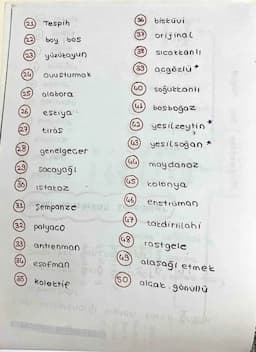 21 Tespih
22 boy bos
23 yüzükoyun
24 avusturmak
25 alabora
26 eşkıya
27 tıraş
28 genelgeçer
29 sacayağı
30 ıstakoz
31 şempanze
32 palyaço
33 antrenman
34 eşofman
35 kolektif
36 bisküvi
37 orijinal
38 sıcakkanlı
39 açgözlü *
40 soğukkanlı
41 boşboğaz
42 yeşilzeytin *
43 yeşilsoğan *
44 maydanoz
45 kolonya
46 enstrüman
47 takdiriilahi
48 rastgele
49 alaşağı etmek
50 alçak gönüllü